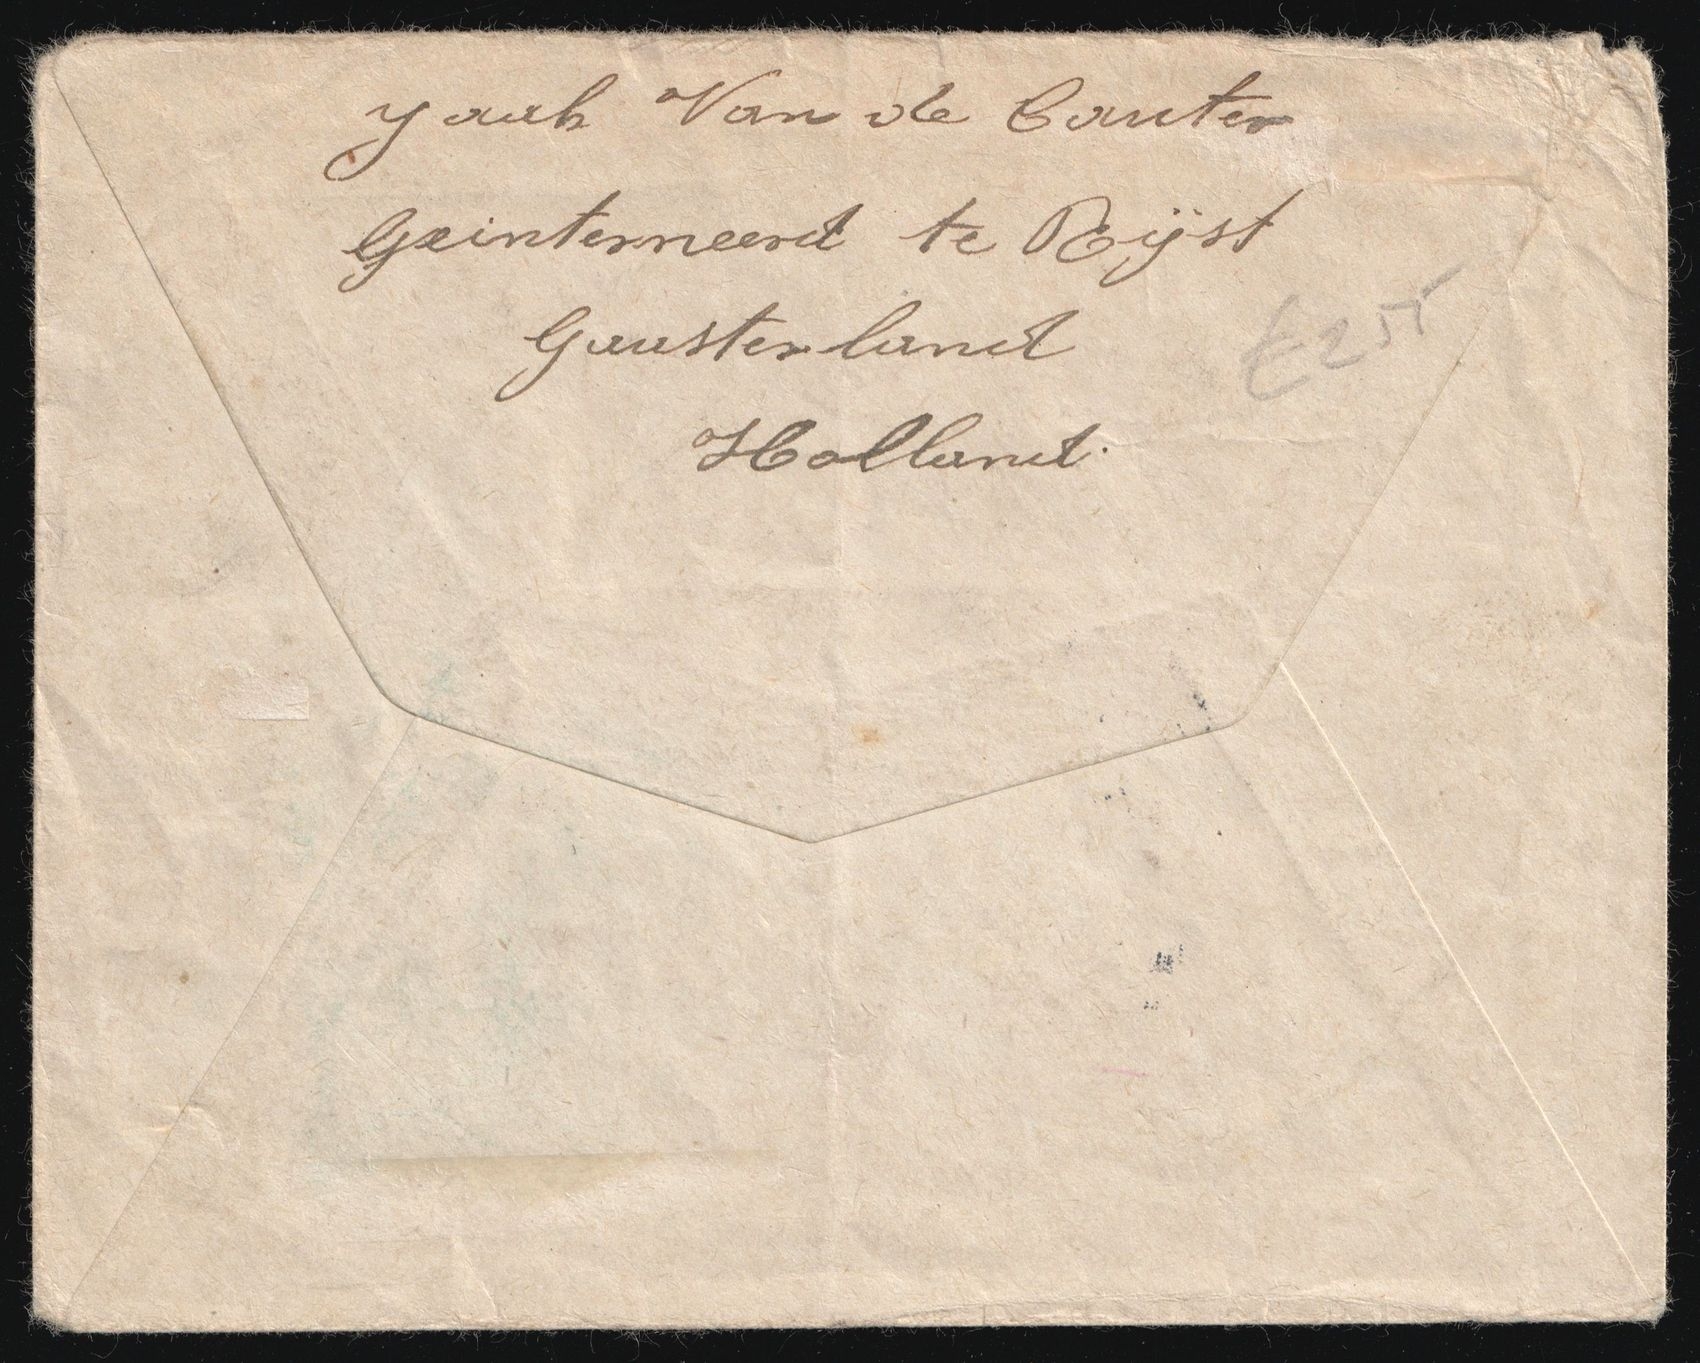 Jaak Van de Cauter
Geinterneerd te Rijst
Gaasterland
Holland.
£255